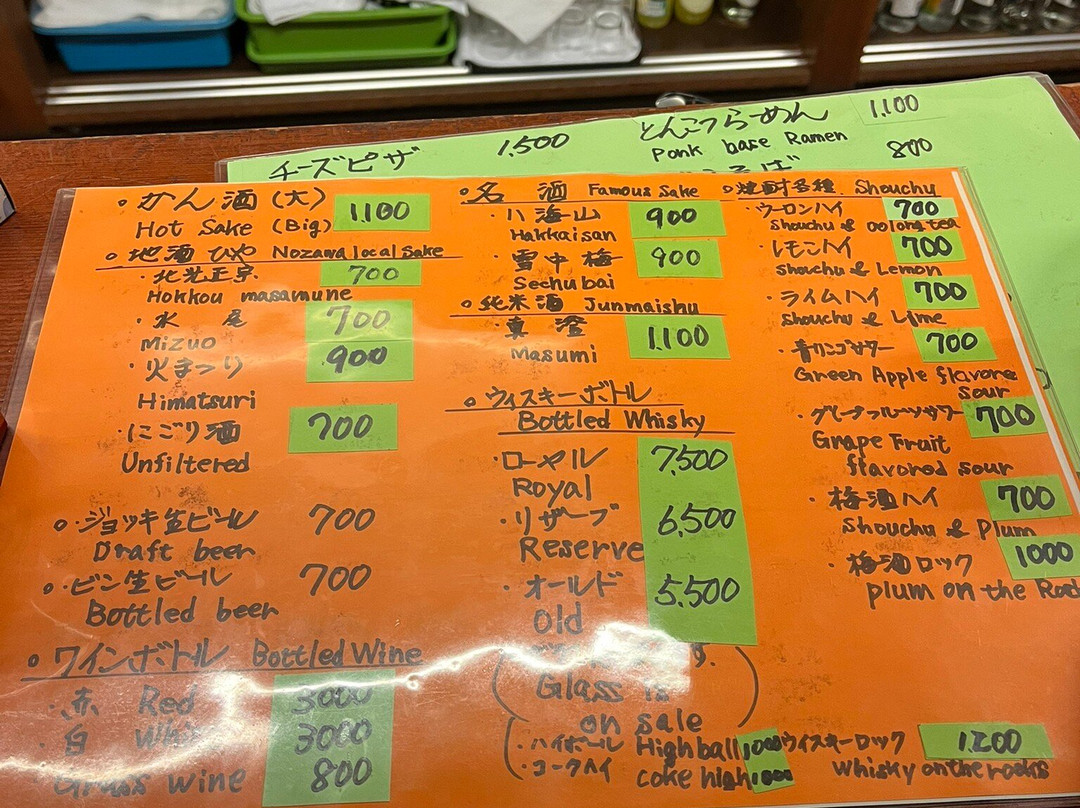 チーズピザ 1,500
とんこつらーめん 1,100
Ponk base Ramen
800
かん酒(大) 1,100
Hot Sake (Big)
地酒 ひや Nozawa local Sake
・北光正宗 700
Hokkou masamune
・水尾 700
Mizuo
・火まつり 900
Himatsuri
・にごり酒 700
Unfiltered
ジョッキ生ビール 700
Draft beer
・ビン生ビール 700
Bottled beer
ワインボトル Bottled Wine
・赤 Red 3000
・白 3000
wine 800
名酒 Famous Sake
・八海山 900
Hakkaisan
・雪中梅 900
Sechubai
純米酒 Junmaishu
・真澄 1,100
Masumi
ウィスキーボトル
Bottled Whisky
・ローヤル 7,500
Royal
・リザーブ 6,500
Reserve
・オールド 5,500
Old
Glass is
on sale
・ハイボール Highball 1,000
・コークハイ coke high
ウイスキーロック 1,200
whisky on the rocks
焼酎各種 Shouchu
・ウーロンハイ 700
Shouchu & oolong tea
・レモンハイ 700
Shouchu & Lemon
・ライムハイ 700
Shouchu & Lime
・青リンゴサワー 700
Green Apple flavore
sour
・グレープフルーツサワー 700
Grape Fruit
flavored sour
・梅酒ハイ 700
Shouchu & Plum
・梅酒ロック 1000
plum on the Roc